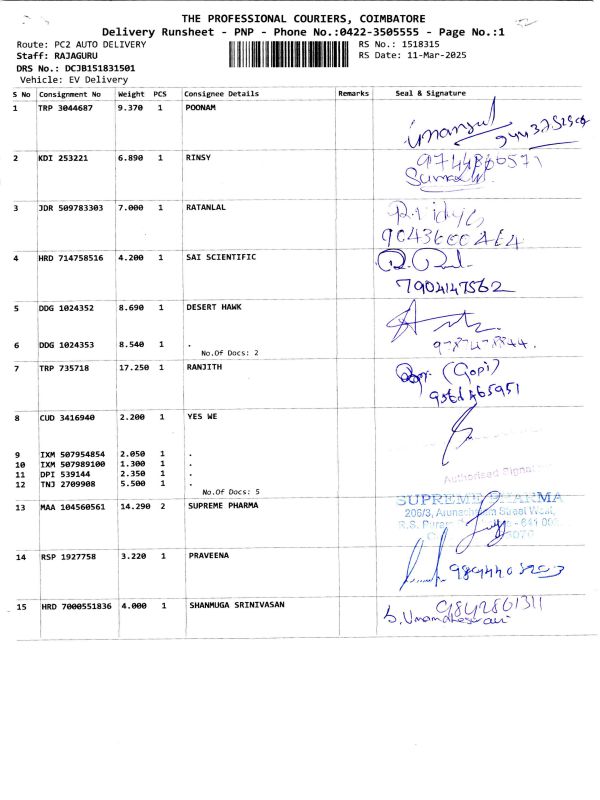 THE PROFESSIONAL COURIERS, COIMBATORE
Delivery Runsheet - PNP - Phone No.:0422-3505555 - Page No.:1
Route: PC2 AUTO DELIVERY RS No.: 1518315
Staff: RAJAGURU RS Date: 11-Mar-2025
DRS No.: DCJB151831501
Vehicle: EV Delivery
S No Consignment No Weight PCS Consignee Details Remarks Seal & Signature
1 TRP 3044687 9.370 1 POONAM
2 KDI 253221 6.890 1 RINSY
3 JDR 509783303 7.000 1 RATANLAL
4 HRD 714758516 4.200 1 SAI SCIENTIFIC
7904147562
5 DDG 1024352 8.690 1 DESERT HAWK
6 DDG 1024353 8.540 1 .
No.Of Docs: 2
7 TRP 735718 17.250 1 RANJITH
(Gopi)
8 CUD 3416940 2.200 1 YES WE
9 IXM 507954854 2.050 1 .
10 IXM 507989100 1.300 1 .
11 DPI 539144 2.350 1 .
12 TNJ 2709908 5.500 1 .
No.Of Docs: 5
Authorised
13 MAA 104560561 14.290 2 SUPREME PHARMA
SUPREME PHARMA
206/3, Street West,
14 RSP 1927758 3.220 1 PRAVEENA
15 HRD 7000551836 4.000 1 SHANMUGA SRINIVASAN
9842861311